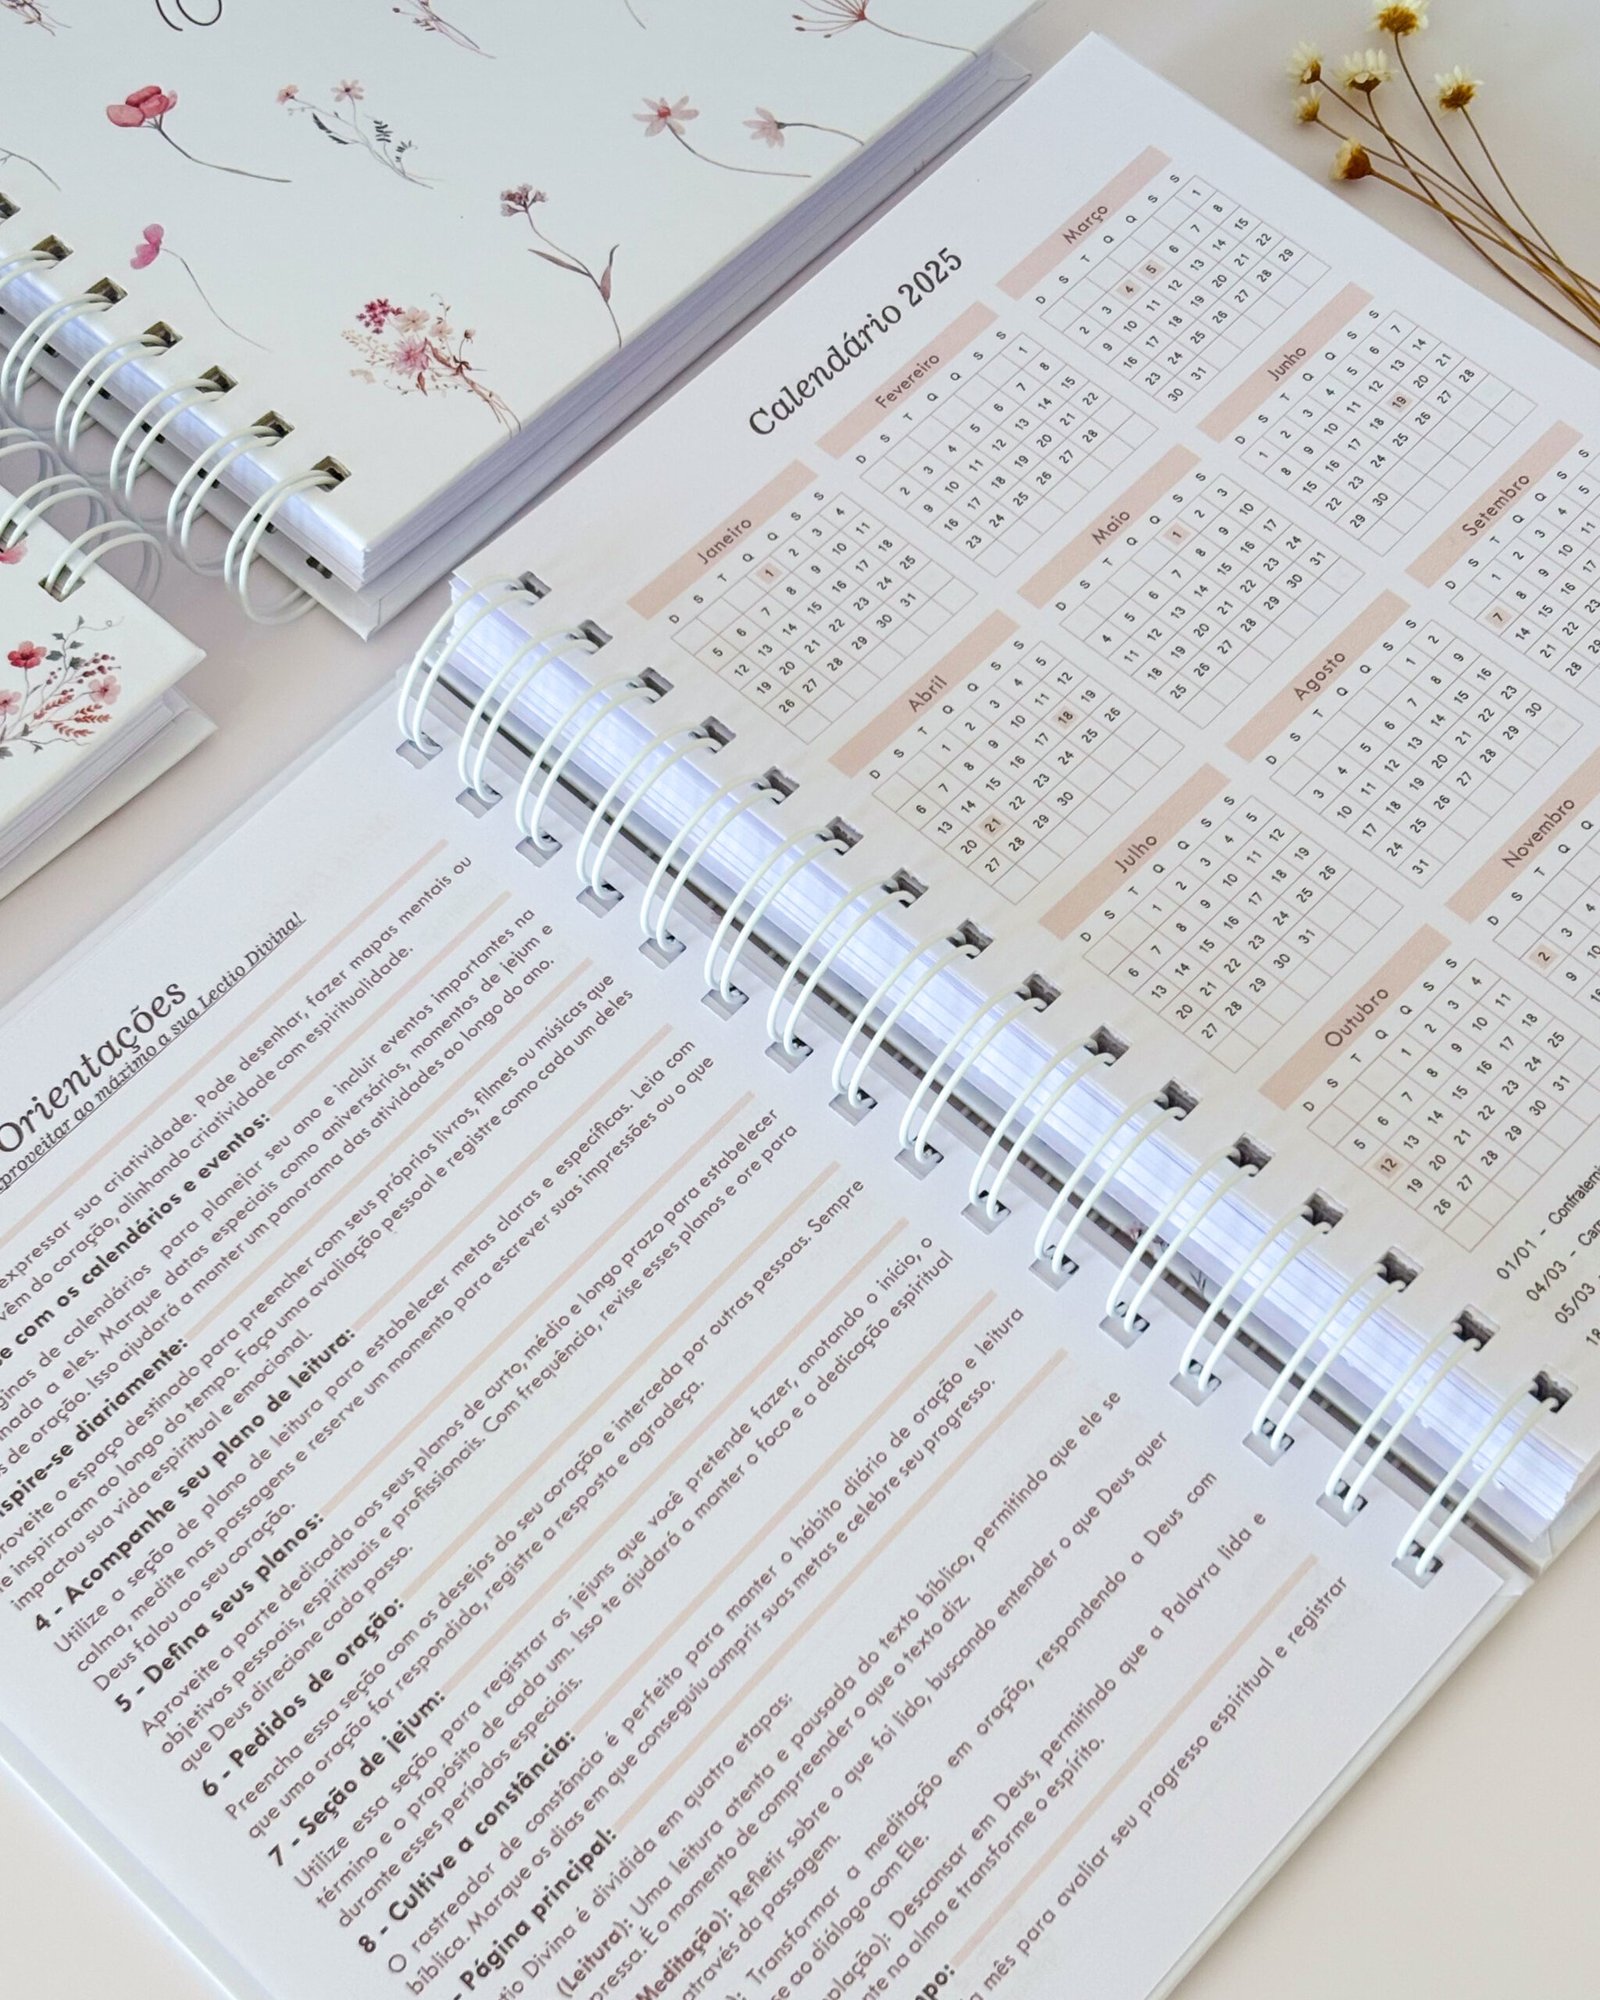 Orientações
aproveitar ao máximo a sua Lectio Divina!
expressar sua criatividade. Pode desenhar, fazer mapas mentais ou
vêm do coração, alinhando criatividade com espiritualidade.
com os calendários e eventos:
de calendários para planejar seu ano e incluir eventos importantes na
a eles. Marque datas especiais como aniversários, momentos de jejum e
de oração. Isso ajudará a manter um panorama das atividades ao longo do ano.
diariamente:
o espaço destinado para preencher com seus próprios livros, filmes ou músicas que
inspiraram ao longo do tempo. Faça uma avaliação pessoal e registre como cada um deles
impactou sua vida espiritual e emocional.
4 - Acompanhe seu plano de leitura:
Utilize a seção de plano de leitura para estabelecer metas claras e específicas. Leia com
calma, medite nas passagens e reserve um momento para escrever suas impressões ou o que
Deus falou ao seu coração.
5 - Defina seus planos:
Aproveite a parte dedicada aos seus planos de curto, médio e longo prazo para estabelecer
objetivos pessoais, espirituais e profissionais. Com frequência, revise esses planos e ore para
que Deus direcione cada passo.
6 - Pedidos de oração:
Preencha essa seção com os desejos do seu coração e interceda por outras pessoas. Sempre
que uma oração for respondida, registre a resposta e agradeça.
7 - Seção de jejum:
Utilize essa seção para registrar os jejuns que você pretende fazer, anotando o início, o
término e o propósito de cada um. Isso te ajudará a manter o foco e a dedicação espiritual
durante esses períodos especiais.
8 - Cultive a constância:
O rastreador de constância é perfeito para manter o hábito diário de oração e leitura
bíblica. Marque os dias em que conseguiu cumprir suas metas e celebre seu progresso.
- Página principal:
Divina é dividida em quatro etapas:
(Leitura): Uma leitura atenta e pausada do texto bíblico, permitindo que ele se
É o momento de compreender o que o texto diz.
Meditação): Refletir sobre o que foi lido, buscando entender o que Deus quer
através da passagem.
Transformar a meditação em oração, respondendo a Deus com
ao diálogo com Ele.
Descansar em Deus, permitindo que a Palavra lida e
na alma e transforme o espírito.
mês para avaliar seu progresso espiritual e registrar
Calendário 2025
Janeiro
D S T Q Q S S
1 2 3 4
5 6 7 8 9 10 11
12 13 14 15 16 17 18
19 20 21 22 23 24 25
26 27 28 29 30 31
Fevereiro
D S T Q Q S S
1
2 3 4 5 6 7 8
9 10 11 12 13 14 15
16 17 18 19 20 21 22
23 24 25 26 27 28
Março
D S T Q Q S S
1
2 3 4 5 6 7 8
9 10 11 12 13 14 15
16 17 18 19 20 21 22
23 24 25 26 27 28 29
30 31
Abril
D S T Q Q S S
1 2 3 4 5
6 7 8 9 10 11 12
13 14 15 16 17 18 19
20 21 22 23 24 25 26
27 28 29 30
Maio
D S T Q Q S S
1 2 3
4 5 6 7 8 9 10
11 12 13 14 15 16 17
18 19 20 21 22 23 24
25 26 27 28 29 30 31
Junho
D S T Q Q S S
1 2 3 4 5 6 7
8 9 10 11 12 13 14
15 16 17 18 19 20 21
22 23 24 25 26 27 28
29 30
Julho
D S T Q Q S S
1 2 3 4 5
6 7 8 9 10 11 12
13 14 15 16 17 18 19
20 21 22 23 24 25 26
27 28 29 30 31
Agosto
D S T Q Q S S
1 2
3 4 5 6 7 8 9
10 11 12 13 14 15 16
17 18 19 20 21 22 23
24 25 26 27 28 29 30
31
Setembro
D S T Q Q S
1 2 3 4 5
7 8 9 10 11
14 15 16 17
21 22 23
28 29
Outubro
D S T Q Q S S
1 2 3 4
5 6 7 8 9 10 11
12 13 14 15 16 17 18
19 20 21 22 23 24 25
26 27 28 29 30 31
Novembro
D S T Q
2 3 4
9 10
16
01/01 -
04/03 -
05/03 -